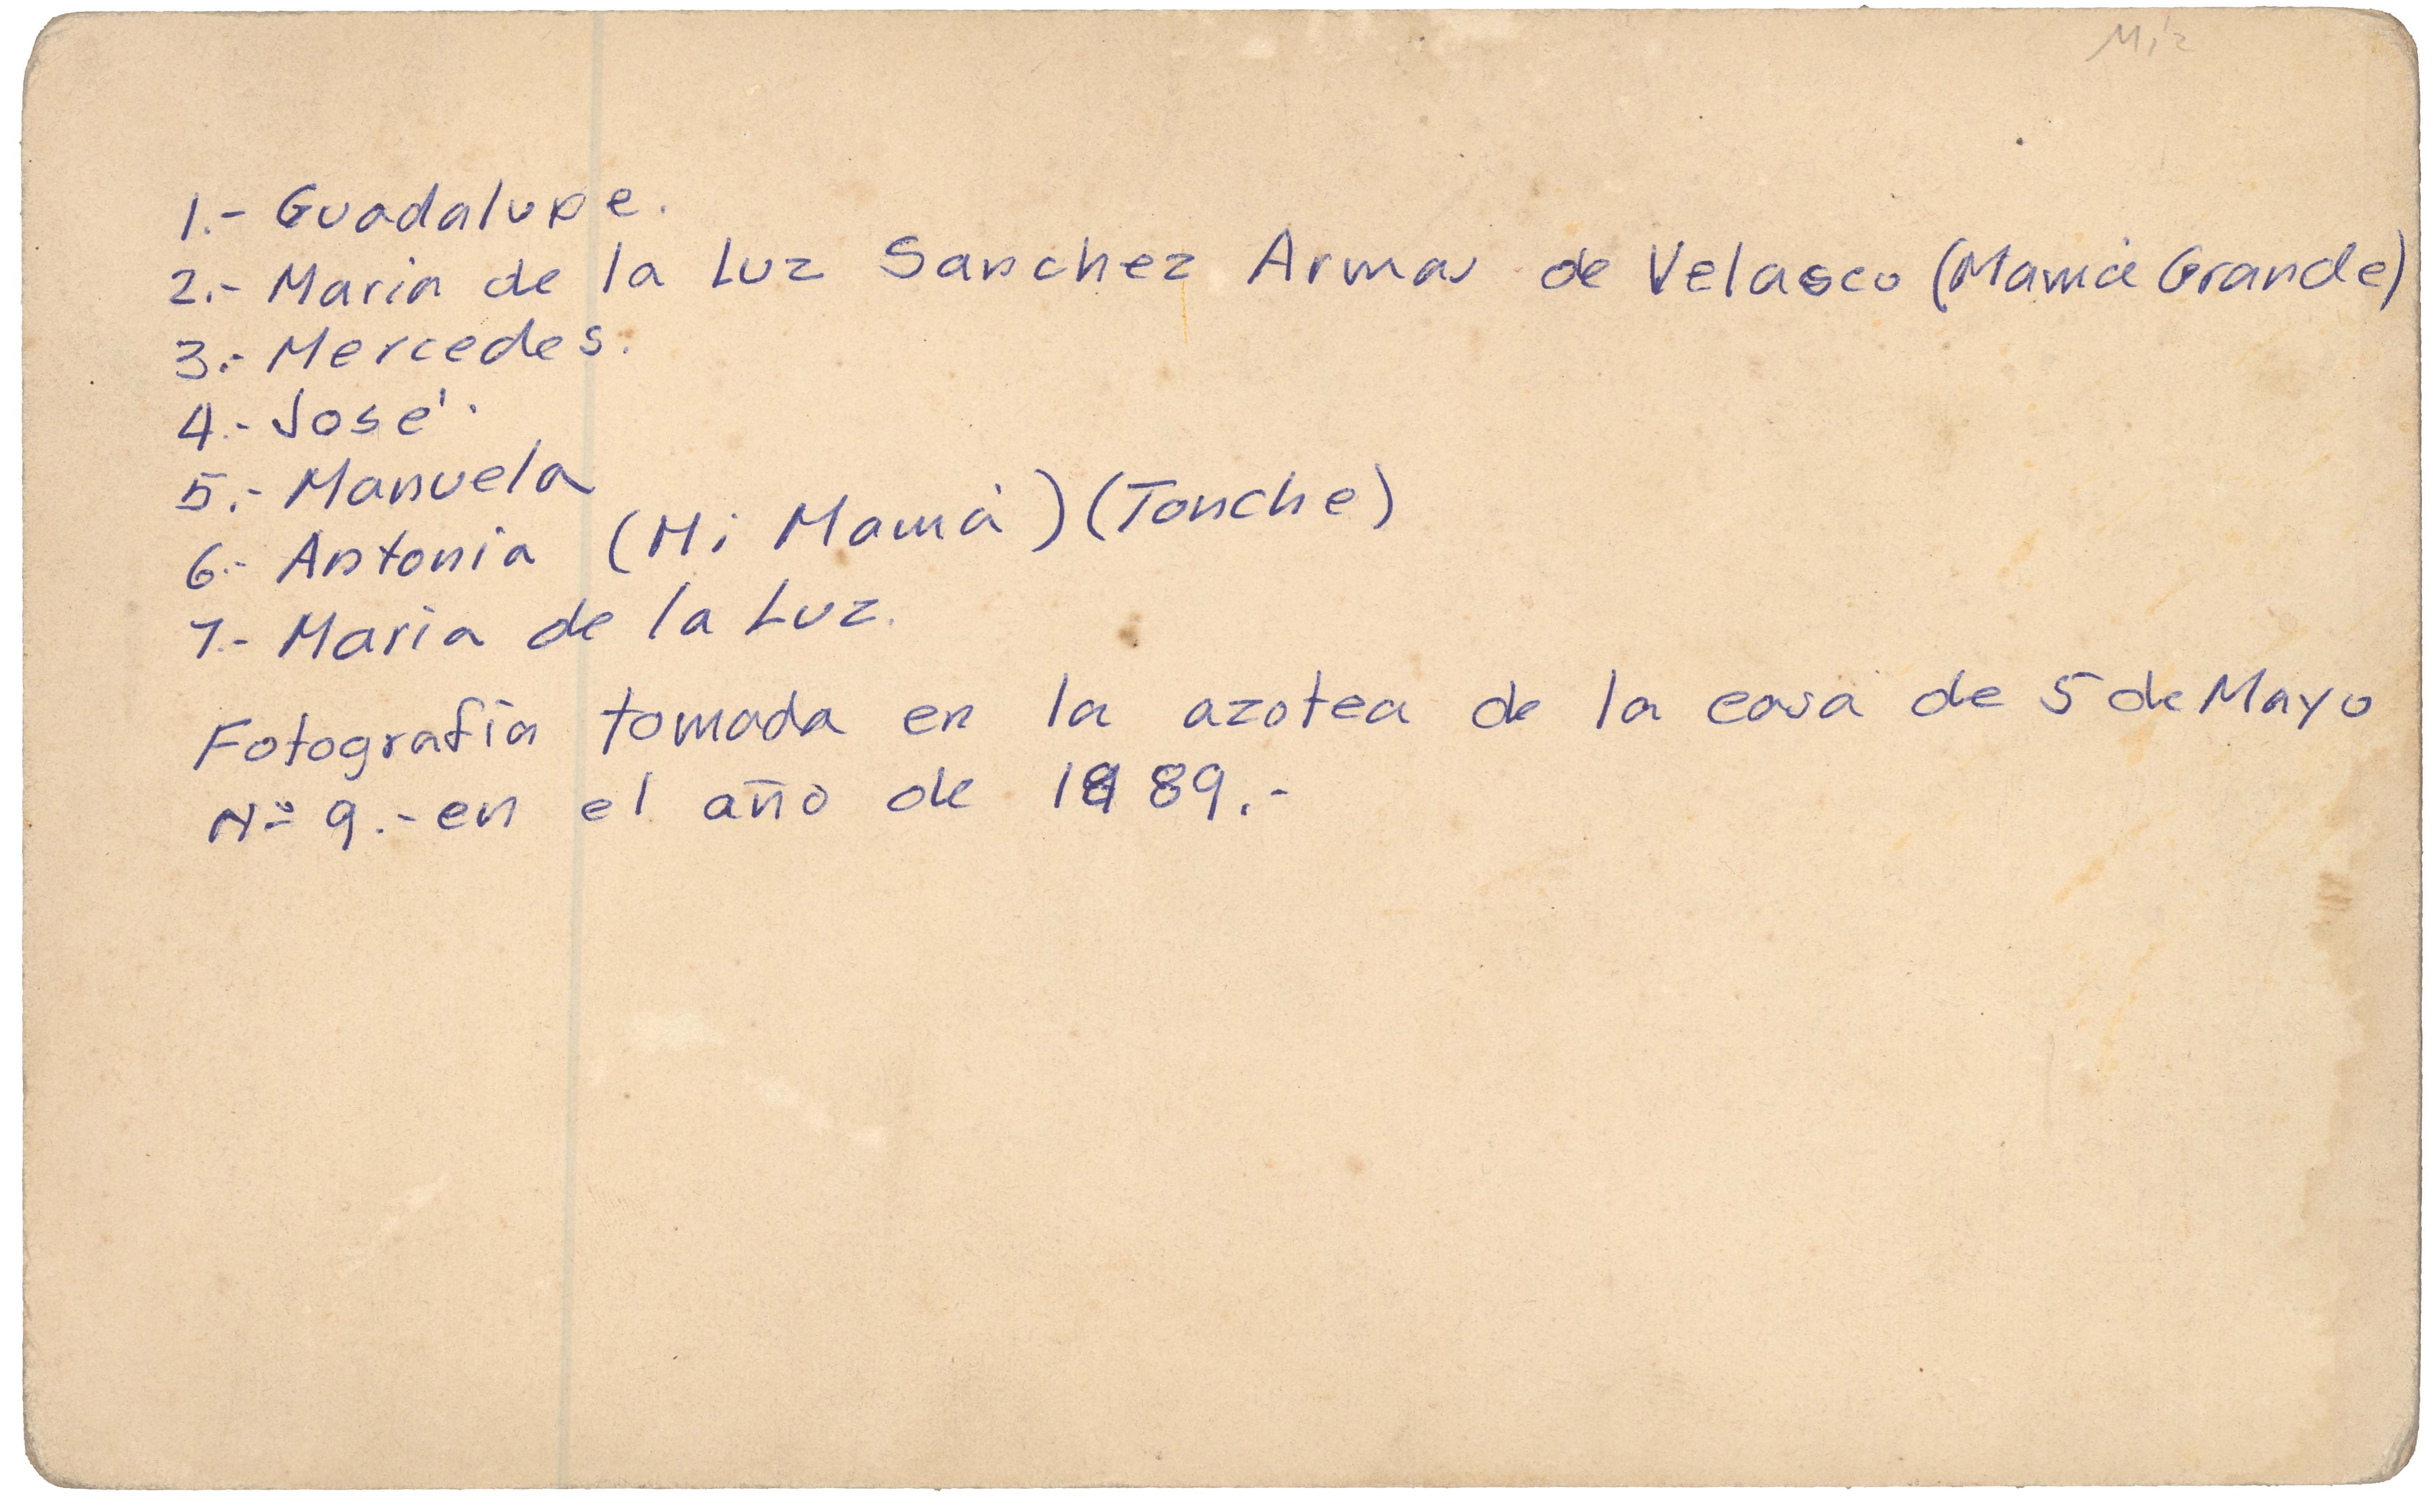 1.- Guadalupe.
2.- Maria de la Luz Sanchez Armas de Velasco (Mamá Grande)
3.- Mercedes.
4.- José.
5.- Manuela
6.- Antonia (Mi Mamá) (Tonche)
7.- Maria de la Luz.
Fotografía tomada en la azotea de la casa de 5 de Mayo
Nº 9.- en el año de 1889.-